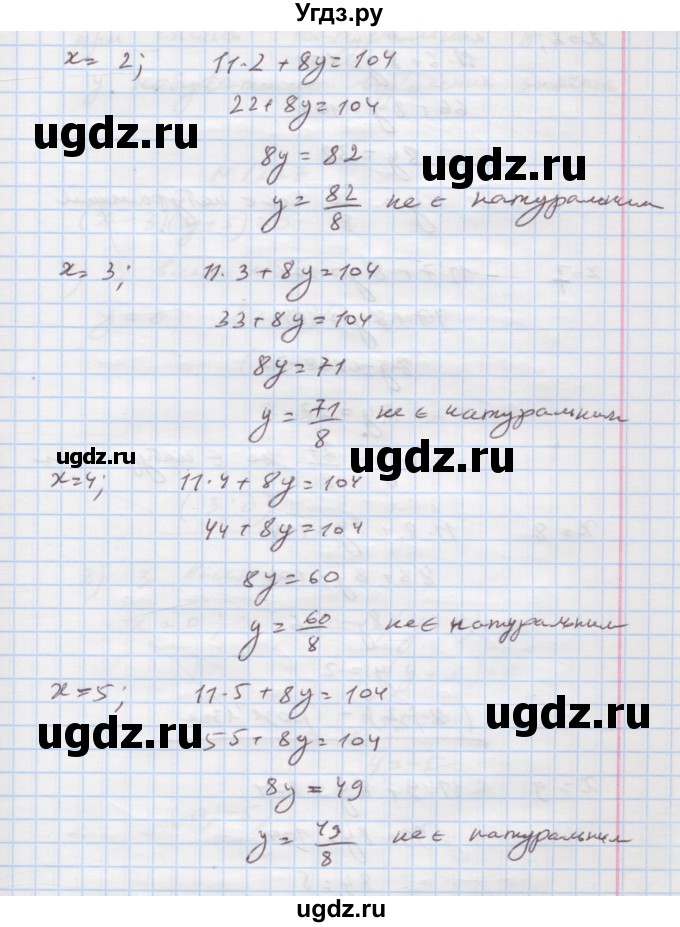 Угдз.ру
x = 2; 11·2 + 8y = 104
22 + 8y = 104
ugdz.ru
8y = 82
ugdz.ru
y = 82/8 не є натуральним
x = 3; 11·3 + 8y = 104
33 + 8y = 104
8y = 71
y = 71/8 не є натуральним
ugdz.ru
ugdz.ru
x=4; 11·4 + 8y = 104
44 + 8y = 104
8y = 60
y = 60/8 не є натуральним
x = 5; 11·5 + 8y = 104
ugdz.ru
ugdz.ru
55 + 8y = 104
8y = 49
ugdz.ru
ugdz.ru
y = 49/8 не є натуральним
ugdz.ru